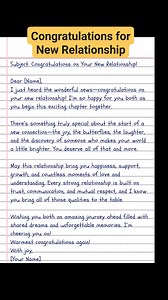 Congratulations for
New Relationship
Subject: Congratulations on Your New Relationship!
Dear [Name],
I just heard the wonderful news—congratulations on
your new relationship! I'm so happy for you both as
you begin this exciting chapter together.
There's something truly special about the start of a
new connection—the joy, the butterflies, the laughter,
and the discovery of someone who makes your world
a little brighter. You deserve all of that and more.
May this relationship bring you happiness, support,
growth, and countless moments of love and
understanding. Every strong relationship is built on
trust, communication, and mutual respect, and I know
you bring all of those qualities to the table.
Wishing you both an amazing journey ahead filled with
shared dreams and unforgettable memories. I'm
cheering you on!
Warmest congratulations again!
With joy,
[Your Name]